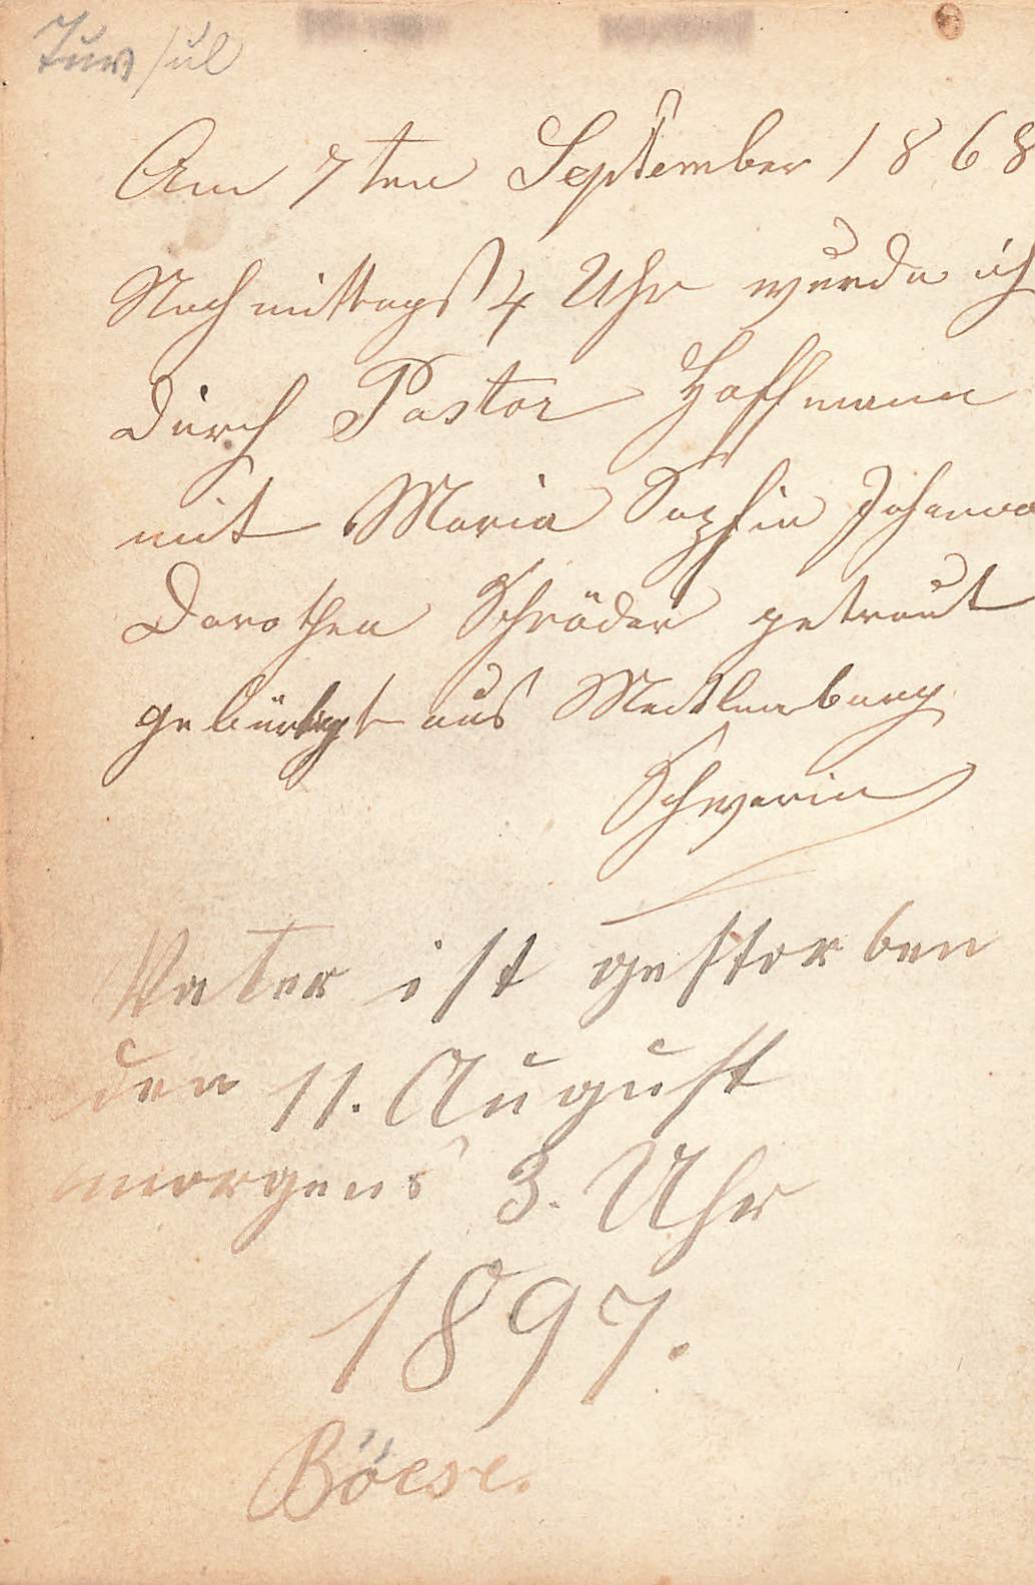 Am 7ten September 1868
Nachmittags 4 Uhr wurde ich
durch Pastor Hoffmann
mit Maria Sophie Johanna
Dorothea Schröder getraut
gebürtigt aus Mecklenburg
Schwerin
Vater ist gestorben
den 11. August
morgens 3. Uhr
1897.
Böese.